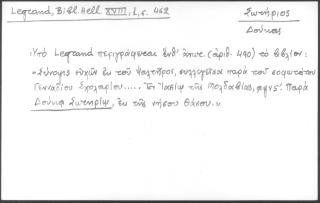 Legrand, Bibl. Hell. XVIII, I, σ. 462
Σωτήριος
Δούκας
Ὑπὸ Legrand περιγράφεται ἐνθ' ἀνωτ. (ἀριθ. 490) τὸ βιβλίον:
«Σύνοψις εὐχῶν ἐκ τοῦ Ψαλτῆρος, συλλεγεῖσα παρὰ τοῦ σοφωτάτου
Γενναδίου Σχολαρίου..... Ἐν Ἰασίῳ τῆς Μολδαβίας, Παρὰ
Δούκᾳ Σωτηρίῳ, ἐκ τῆς νήσου Θάσου.»